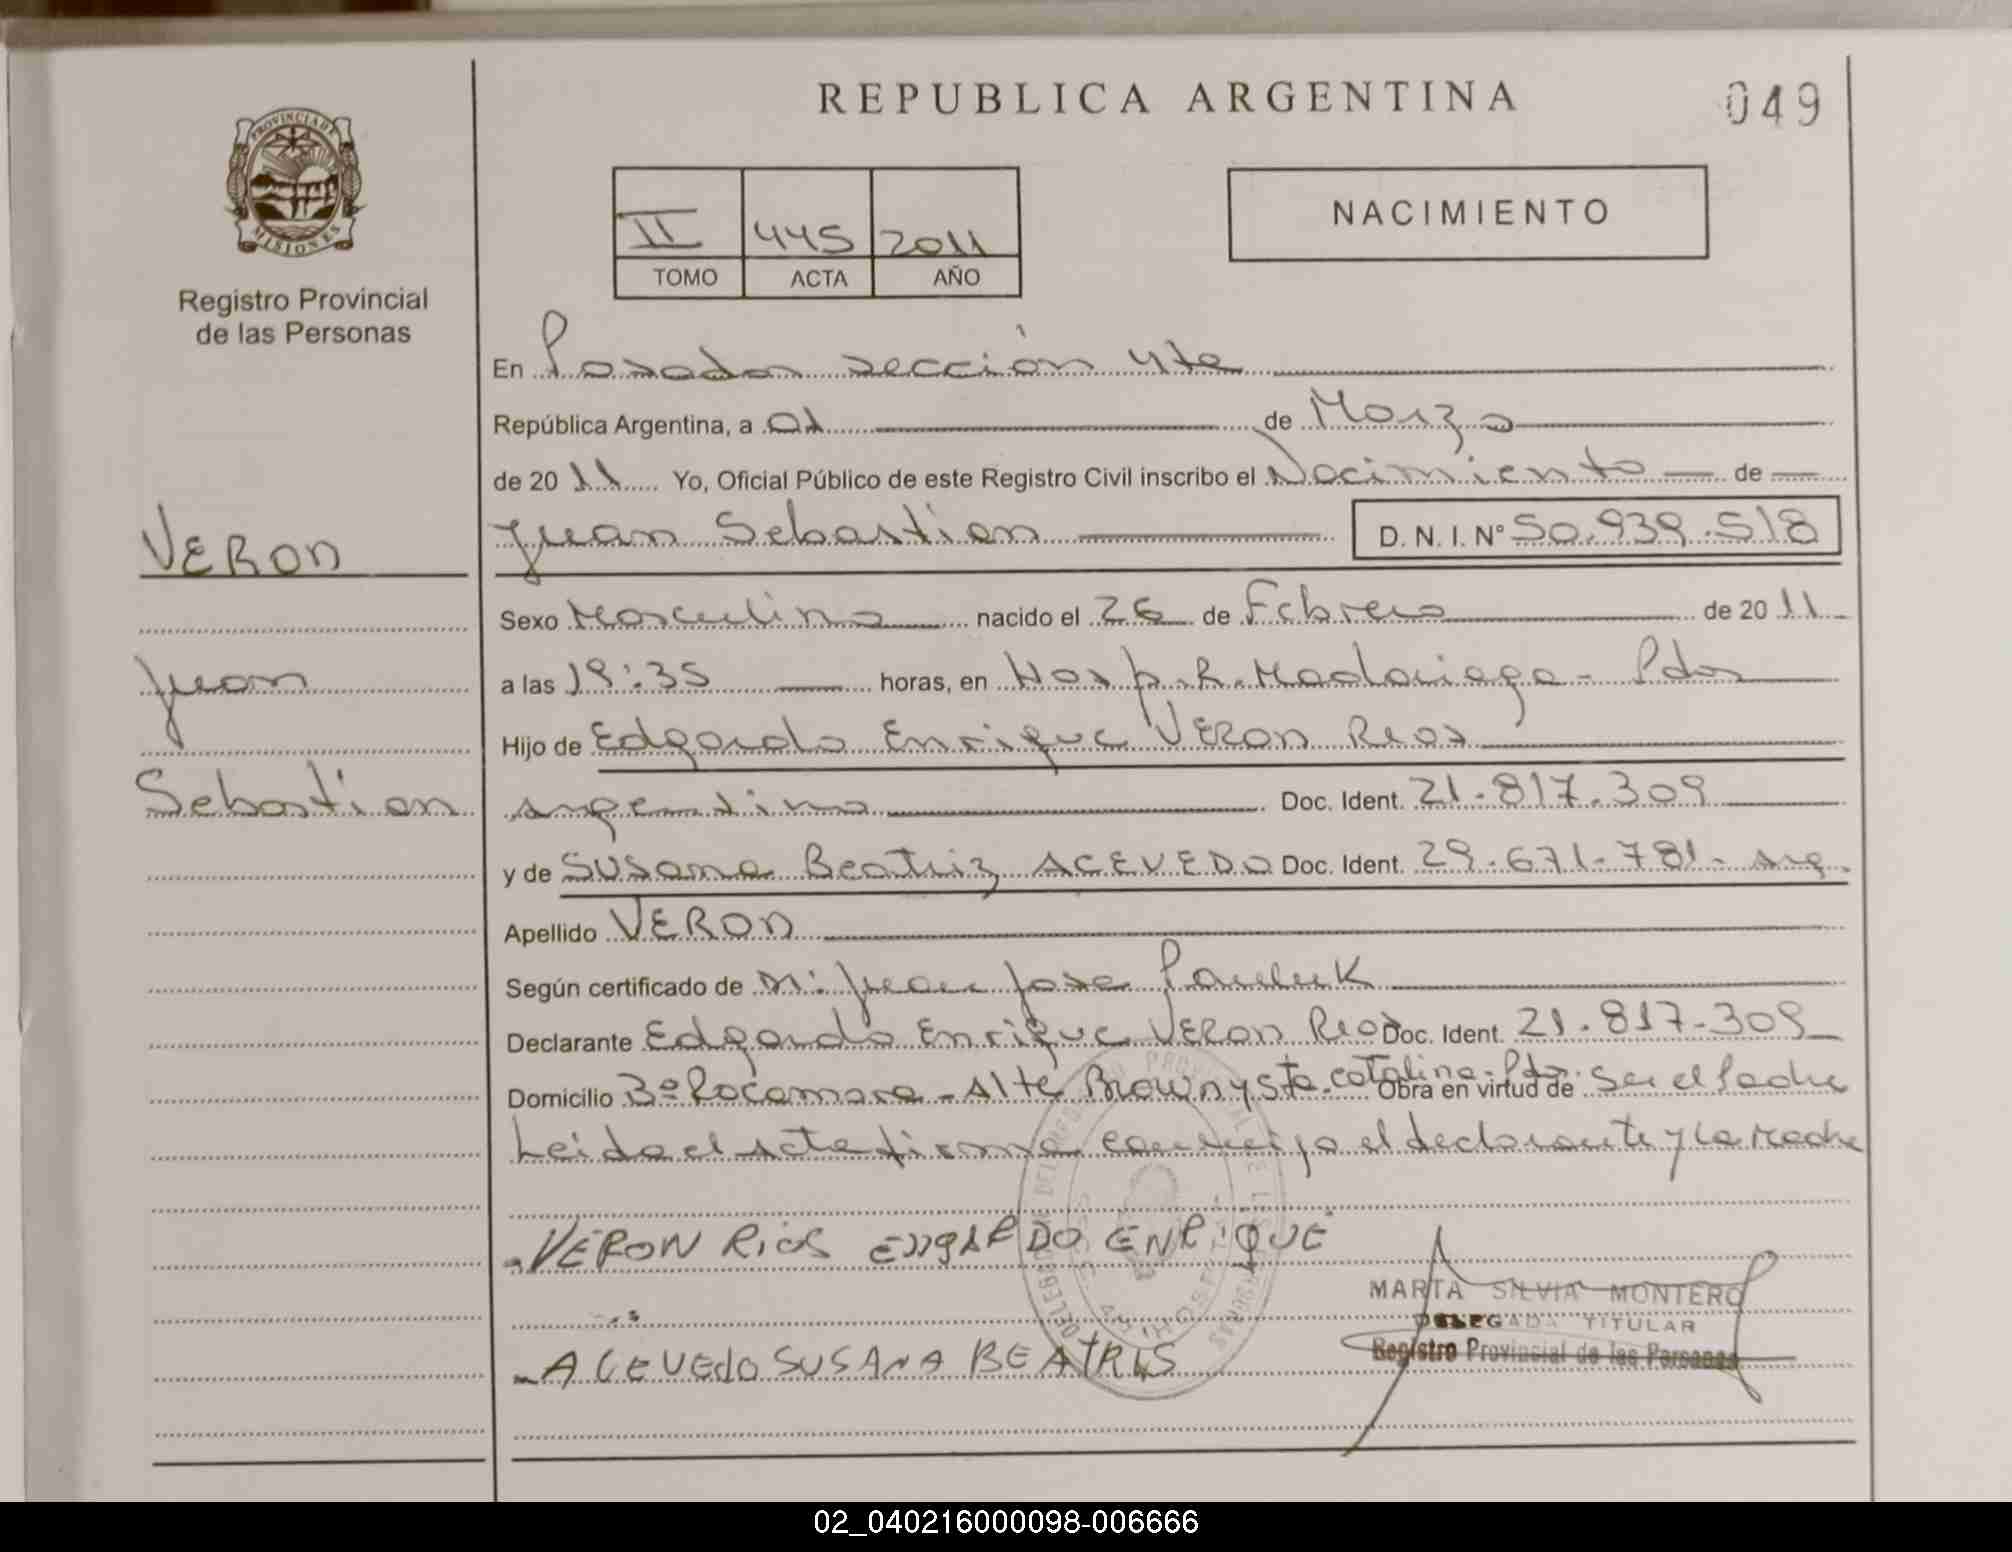 REPUBLICA ARGENTINA
049
PROVINCIA DE
MISIONES
Registro Provincial
de las Personas
II 445 2011
TOMO ACTA AÑO
NACIMIENTO
En Posadas sección 4ta
República Argentina, a 01 de Marzo
de 2011 Yo, Oficial Público de este Registro Civil inscribo el Nacimiento de
Juan Sebastian D. N. I. N° 50.939.518
VERON
Juan
Sebastian
Sexo Masculino nacido el 26 de Febrero de 2011
a las 19:35 horas, en Hosp. R. Madariaga - Pdas
Hijo de Edgardo Enrique VERON Rios
argentino Doc. Ident. 21.817.309
y de Susana Beatriz ACEVEDO Doc. Ident. 29.671.781 - arg.
Apellido VERON
Según certificado de M: Juan Jose Pauluk
Declarante Edgardo Enrique VERON Rios Doc. Ident. 21.817.309
Domicilio Bº Rocamora - Alte Brown y Sta. Catalina - Pdas. Obra en virtud de ser el Padre
Leida el acta firma conmigo el declarante y la Madre
VERON RiOS EDgARDO ENRiQUE
ACEVEDO SUSANA BEATRIS
MARTA SILVIA MONTERO
DELEGADA TITULAR
Registro Provincial de las Personas
02_040216000098-006666